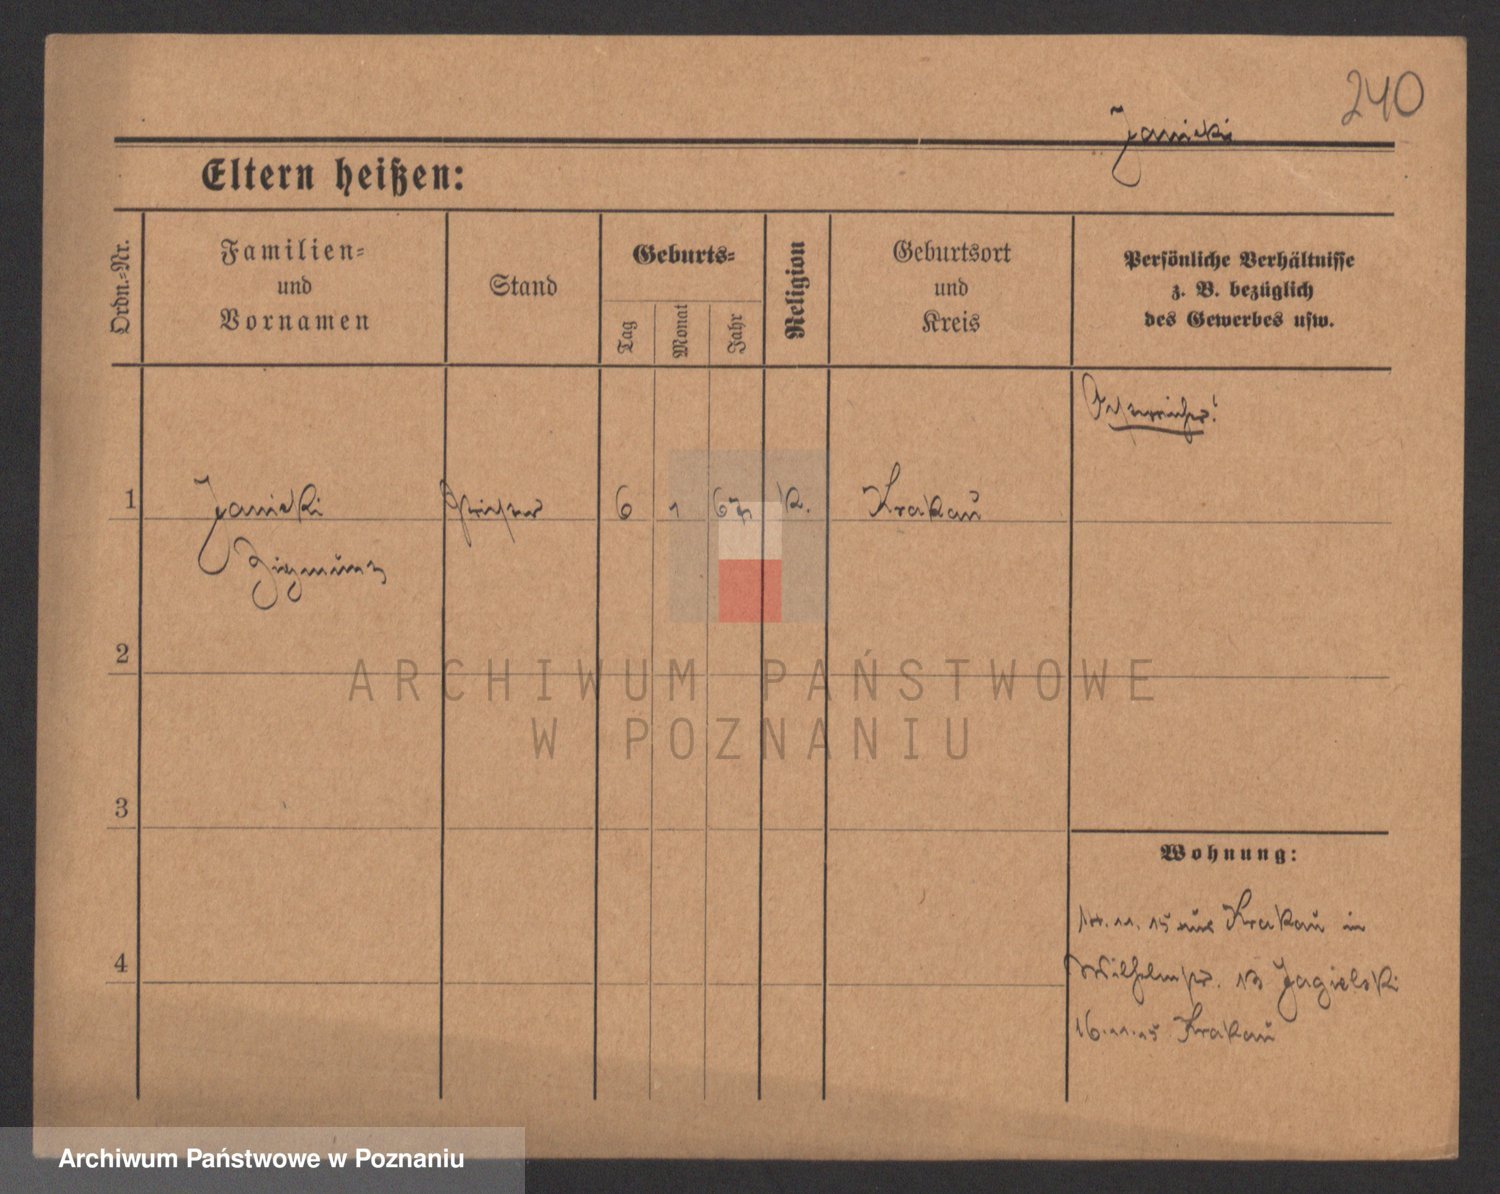 240
Janicki
Eltern heißen:
Ordn.-Nr.
Familien-
und
Vornamen
Stand
Geburts-
Tag
Monat
Jahr
Religion
Geburtsort
und
Kreis
Persönliche Verhältnisse
z. B. bezüglich
des Gewerbes usw.
Österreicher!
1 Janicki 6 1 67 k. Krakau
Zigmund
2
3
4
ARCHIWUM PAŃSTWOWE
W POZNANIU
Wohnung:
14.11.15 aus Krakau in
Wilhelmstr. 13 Jagielski
16.11.15 Krakau
Archiwum Państwowe w Poznaniu